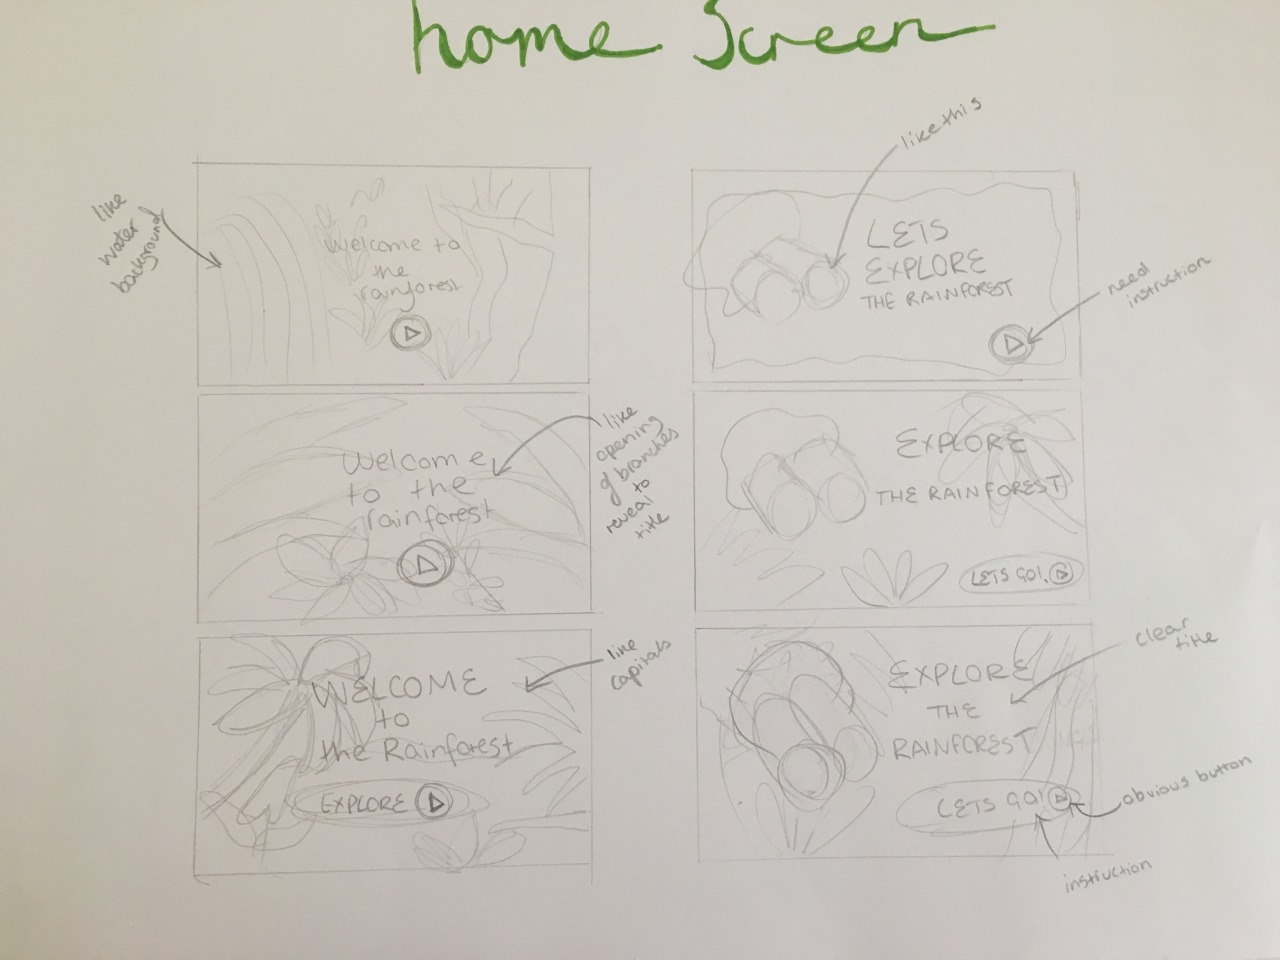 home Screen
like
water
background
Welcome to
the
rainforest
like this
LETS
EXPLORE
THE RAINFOREST
need
instruction
Welcome
to the
rainforest
like
opening
of branches
to
reveal
title
EXPLORE
THE RAINFOREST
LETS GO!
WELCOME
to
the Rainforest
EXPLORE
like
capitals
EXPLORE
THE
RAINFOREST
LETS GO!
clear
title
obvious button
instruction